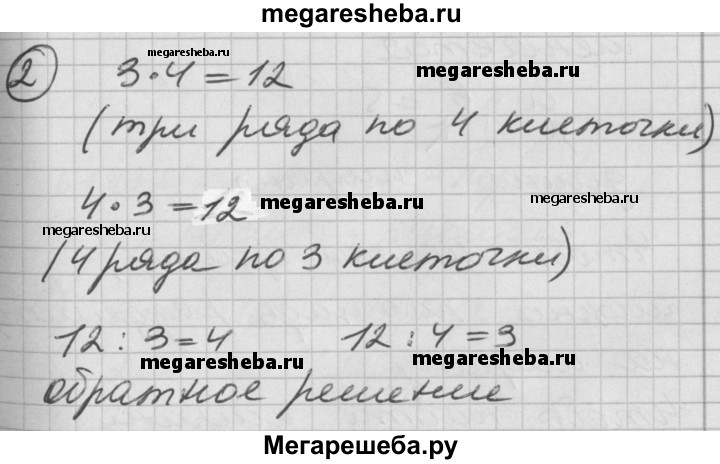 megaresheba.ru
megaresheba.ru
2 3 · 4 = 12 megaresheba.ru
(три ряда по 4 клеточки)
4 · 3 = 12 megaresheba.ru megaresheba.ru
megaresheba.ru
(4 ряда по 3 клеточки)
12 : 3 = 4 12 : 4 = 3
megaresheba.ru megaresheba.ru
обратное решение
Мегарешеба.ру